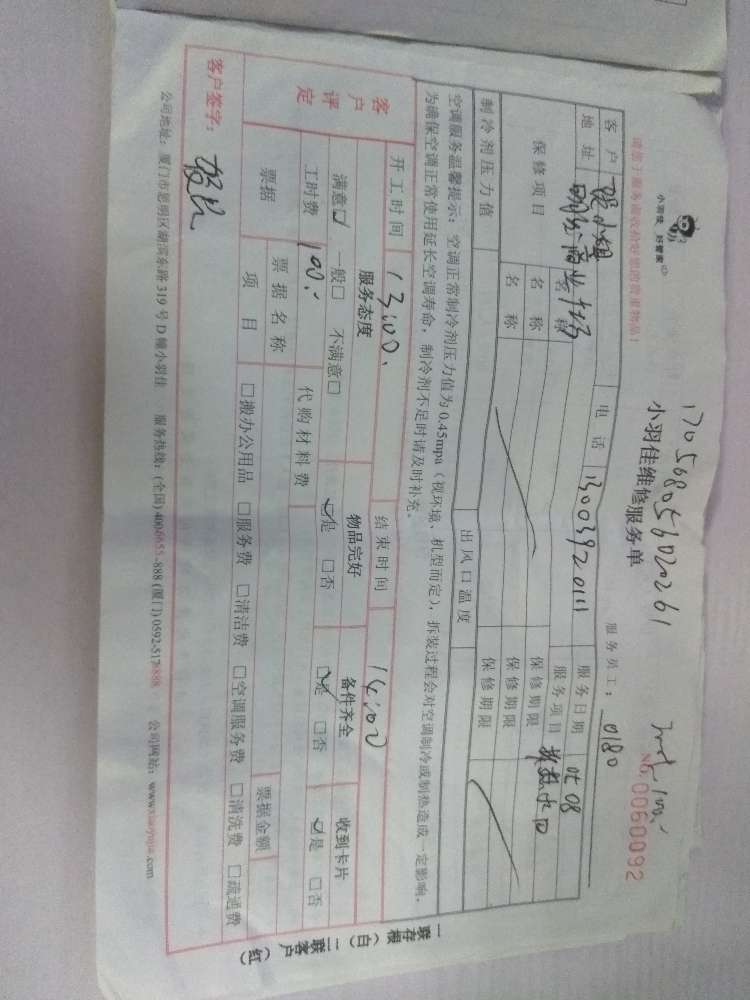 17056805602026
100.
小羽佳 好管家
小羽佳维修服务单
№ 0060092
请您于服务前收拾好您的贵重物品!
服务员工: 0180
客户
电话 13003920111
服务日期
08
地址
服务项目
保修项目
名称
保修期限
名称
保修期限
名称
保修期限
制冷剂压力值
出风口温度
空调服务温馨提示: 空调正常制冷剂压力值为0.45mpa(视环境、机型而定), 拆装过程会对空调制冷或制热造成一定影响,
为确保空调正常使用延长空调寿命, 制冷剂不足时请及时补充。
开工时间 13:00.
结束时间 14:00
客户评定
服务态度
物品完好
备件齐全
收到卡片
满意☑ 一般□ 不满意□
☑是 □否
☑是 □否
☑是 □否
工时费 100.
代购材料费
票据
票据名称
票据金额
项目 □搬办公用品 □服务费 □清洁费 □空调服务费 □清洗费 □疏通费
客户签字:
公司地址: 厦门市思明区湖滨东路319号D幢小羽佳 服务热线: (全国)400-8655-888 (厦门)0592-5178888 公司网站: www.xiaoyujia.com
一联存根(白) 二联客户(红)